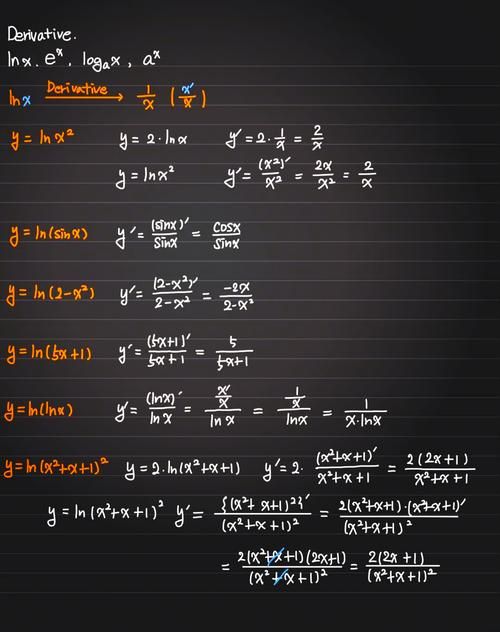 Derivative.
ln x, eˣ, logₐx, aˣ
ln x —Derivative→ 1/x (x′/x)
y = ln x² y = 2·ln x y′ = 2·1/x = 2/x
y = ln x² y′ = (x²)′/x² = 2x/x² = 2/x
y = ln(sinx) y′ = (sinx)′/sinx = cosx/sinx
y = ln(2-x²) y′ = (2-x²)′/(2-x²) = -2x/(2-x²)
y = ln(5x+1) y′ = (5x+1)′/(5x+1) = 5/(5x+1)
y = ln(lnx) y′ = (lnx)′/lnx = (x′/x)/lnx = (1/x)/lnx = 1/(x·lnx)
y = ln(x²+x+1)² y = 2·ln(x²+x+1) y′ = 2·(x²+x+1)′/(x²+x+1) = 2(2x+1)/(x²+x+1)
y = ln(x²+x+1)² y′ = {(x²+x+1)²}′/(x²+x+1)² = 2(x²+x+1)·(x²+x+1)′/(x²+x+1)²
= 2(x²+x+1)(2x+1)/(x²+x+1)² = 2(2x+1)/(x²+x+1)²